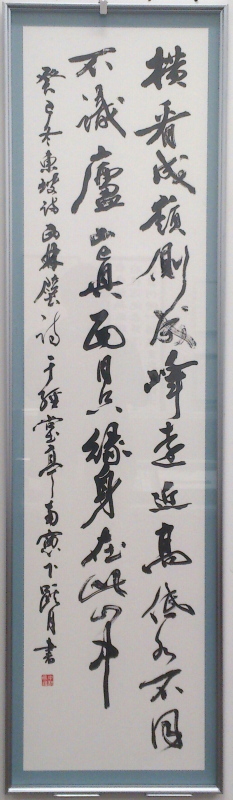 横看成嶺側成峰遠近高低各不同
不識廬山真面目只緣身在此山中
癸巳冬東坡詩西林壁詩於經堂亭南窓下跪月書